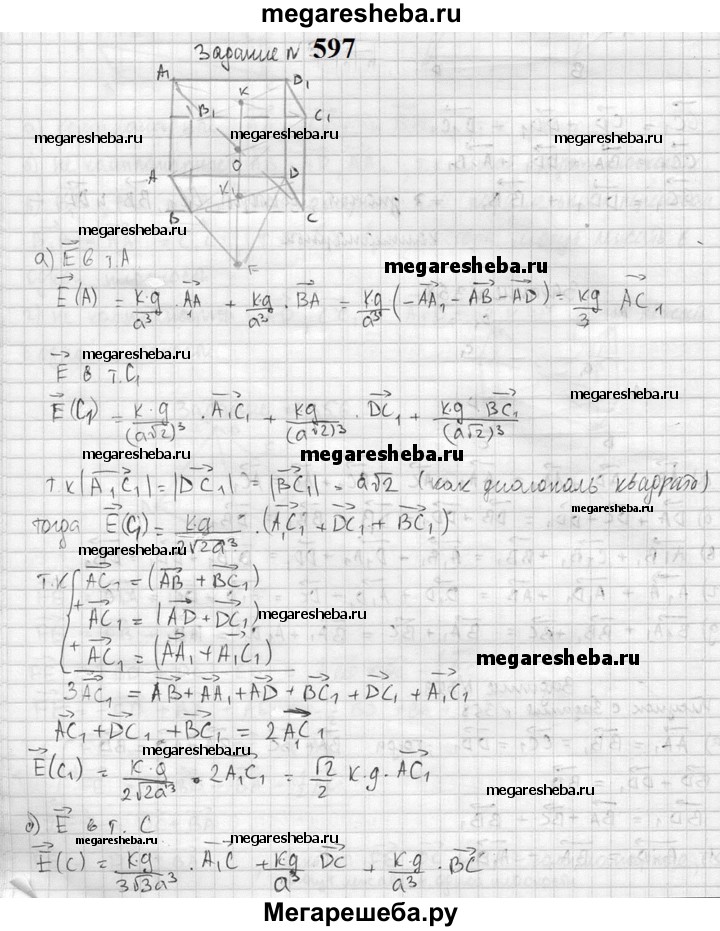 megaresheba.ru
Задание № 597
A₁ D₁
K
B₁ C₁
megaresheba.ru megaresheba.ru
O
A D
K₁
B C
megaresheba.ru
F
а) E⃗ в т.A megaresheba.ru
E⃗(A) = k·q/a³ · AA₁⃗ + k·q/a³ · BA⃗ = k·q/a³ (-AA₁⃗ - AB⃗ - AD⃗) = kq/3 AC₁⃗
megaresheba.ru
E⃗ в т.C₁
megaresheba.ru
E⃗(C₁) = k·q/(a√2)³ · A₁C₁⃗ + kq/(a√2)³ · DC₁⃗ + k·q/(a√2)³ BC₁⃗
megaresheba.ru megaresheba.ru
т.к |A₁C₁⃗| = |DC₁⃗| = |BC₁⃗| = a√2 (как диагональ квадрата)
тогда E⃗(C₁) = kq/2√2a³ · (A₁C₁⃗ + DC₁⃗ + BC₁⃗)
megaresheba.ru
т.к AC₁⃗ = (AB⃗ + BC₁⃗)
+ AC₁⃗ = (AD⃗ + DC₁⃗) megaresheba.ru
+ AC₁⃗ = (AA₁⃗ + A₁C₁⃗)
megaresheba.ru
3AC₁⃗ = AB⃗ + AA₁⃗ + AD⃗ + BC₁⃗ + DC₁⃗ + A₁C₁⃗
AC₁⃗ + DC₁⃗ + BC₁⃗ = 2AC₁⃗
megaresheba.ru
E⃗(C₁) = k·q/2√2a³ · 2A₁C₁⃗ = √2/2 k·q·AC₁⃗
megaresheba.ru
б) E⃗ в т. C
megaresheba.ru megaresheba.ru megaresheba.ru
E⃗(C) = kq/3√3a³ · A₁C⃗ + kq/a³ DC⃗ + k·q/a³ · BC⃗
Мегарешеба.ру